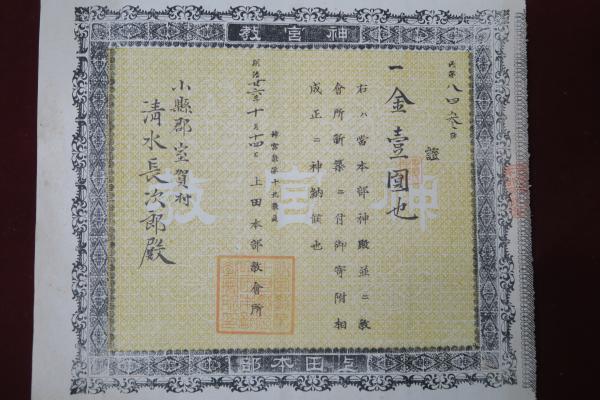 神宮教
天第八四叁号
證
一金壹圓也
右ハ當本部神殿並ニ教
會所新築ニ付御寄附相
成正ニ神納候也
神宮教第十九教區
明治廿六年十月十四日 上田本部教會所
小縣郡室賀村
清水長次郎殿
神宮教
上田本部